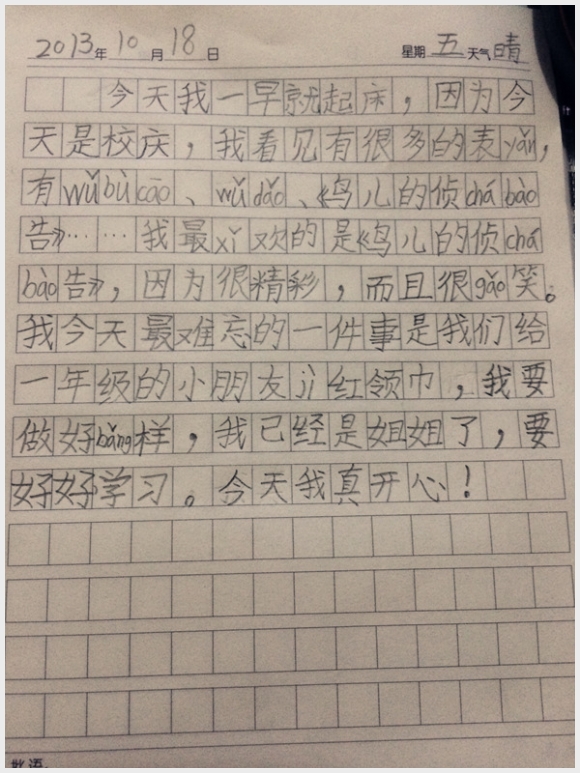 2013年10月18日 星期五天气晴
今天我一早就起床，因为今
天是校庆，我看见有很多的表yǎn，
有wǔbùcāo、wǔdǎo、《鸟儿的侦chábào
告》……我最xǐ欢的是《鸟儿的侦chá
bào告》，因为很精彩，而且很gǎo笑。
我今天最难忘的一件事是我们给
一年级的小朋友jì红领巾，我要
做好bǎng样，我已经是姐姐了，要
好好学习。今天我真开心！
批语：